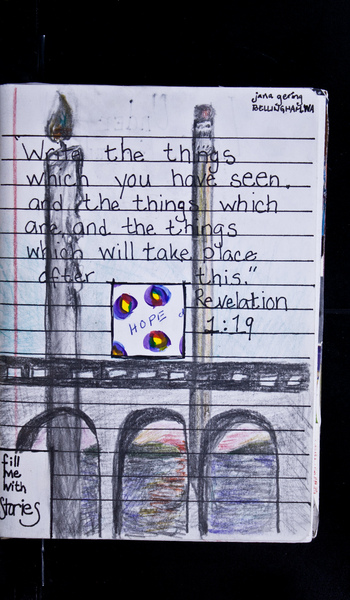 jana gering
BELLINGHAM, WA
"Write the things
which you have seen,
and the things which
are, and the things
which will take place
after this."
Revelation
1:19
HOPE
fill
me
with
Stories